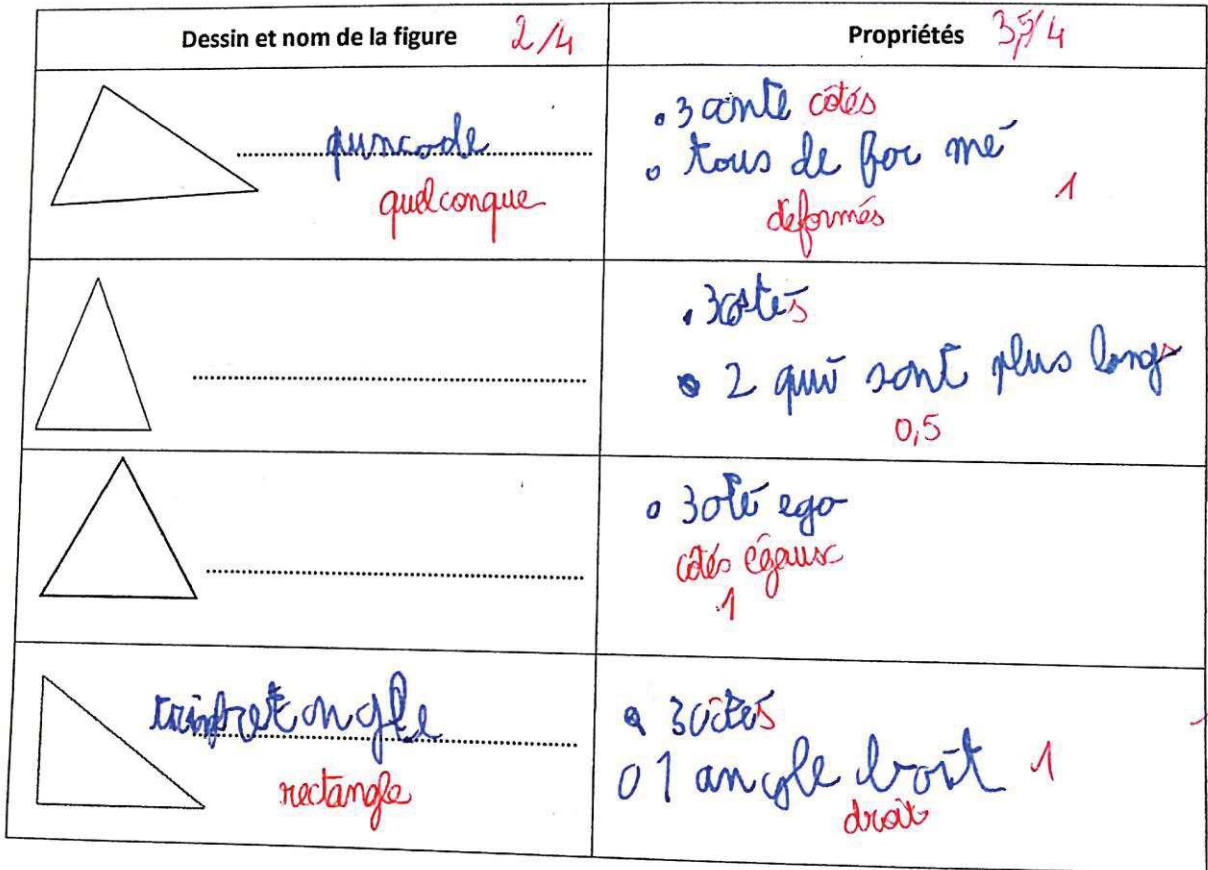 Dessin et nom de la figure 2/4
Propriétés 3,5/4
quncode
quelconque
• 3 conte côtés
• tous de for mé
déformés
1
• 3 costés
• 2 qui sont plus longs
0,5
• 3 oté ego
côtés égaux
1
rectangle
• 3 cotés
• 1 angle broit 1
droit